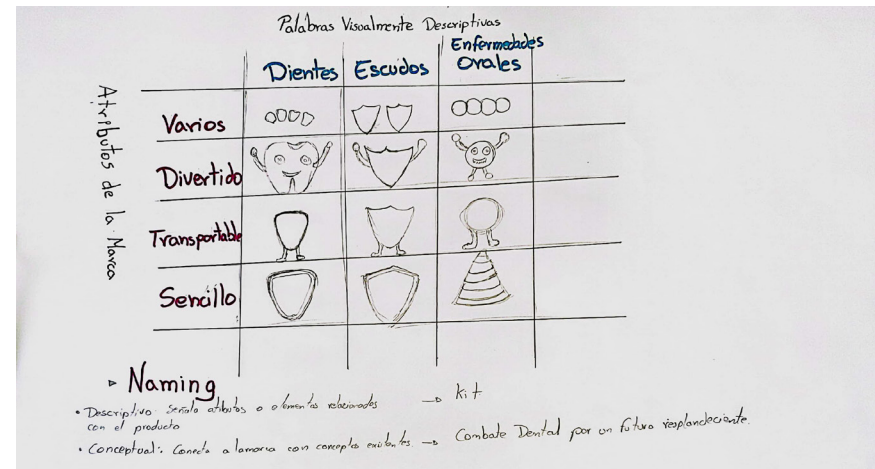 Palabras Visualmente Descriptivas
Dientes
Escudos
Enfermedades
Orales
Atributos de la Marca
Varios
Divertido
Transportable
Sencillo
▹ Naming
• Descriptivo: Señala atibutos o elementos relacionados → Kit
con el producto
• Conceptual: Conecta a lamarca con conceptos existentes → Combate Dental por un futuro resplandeciente.